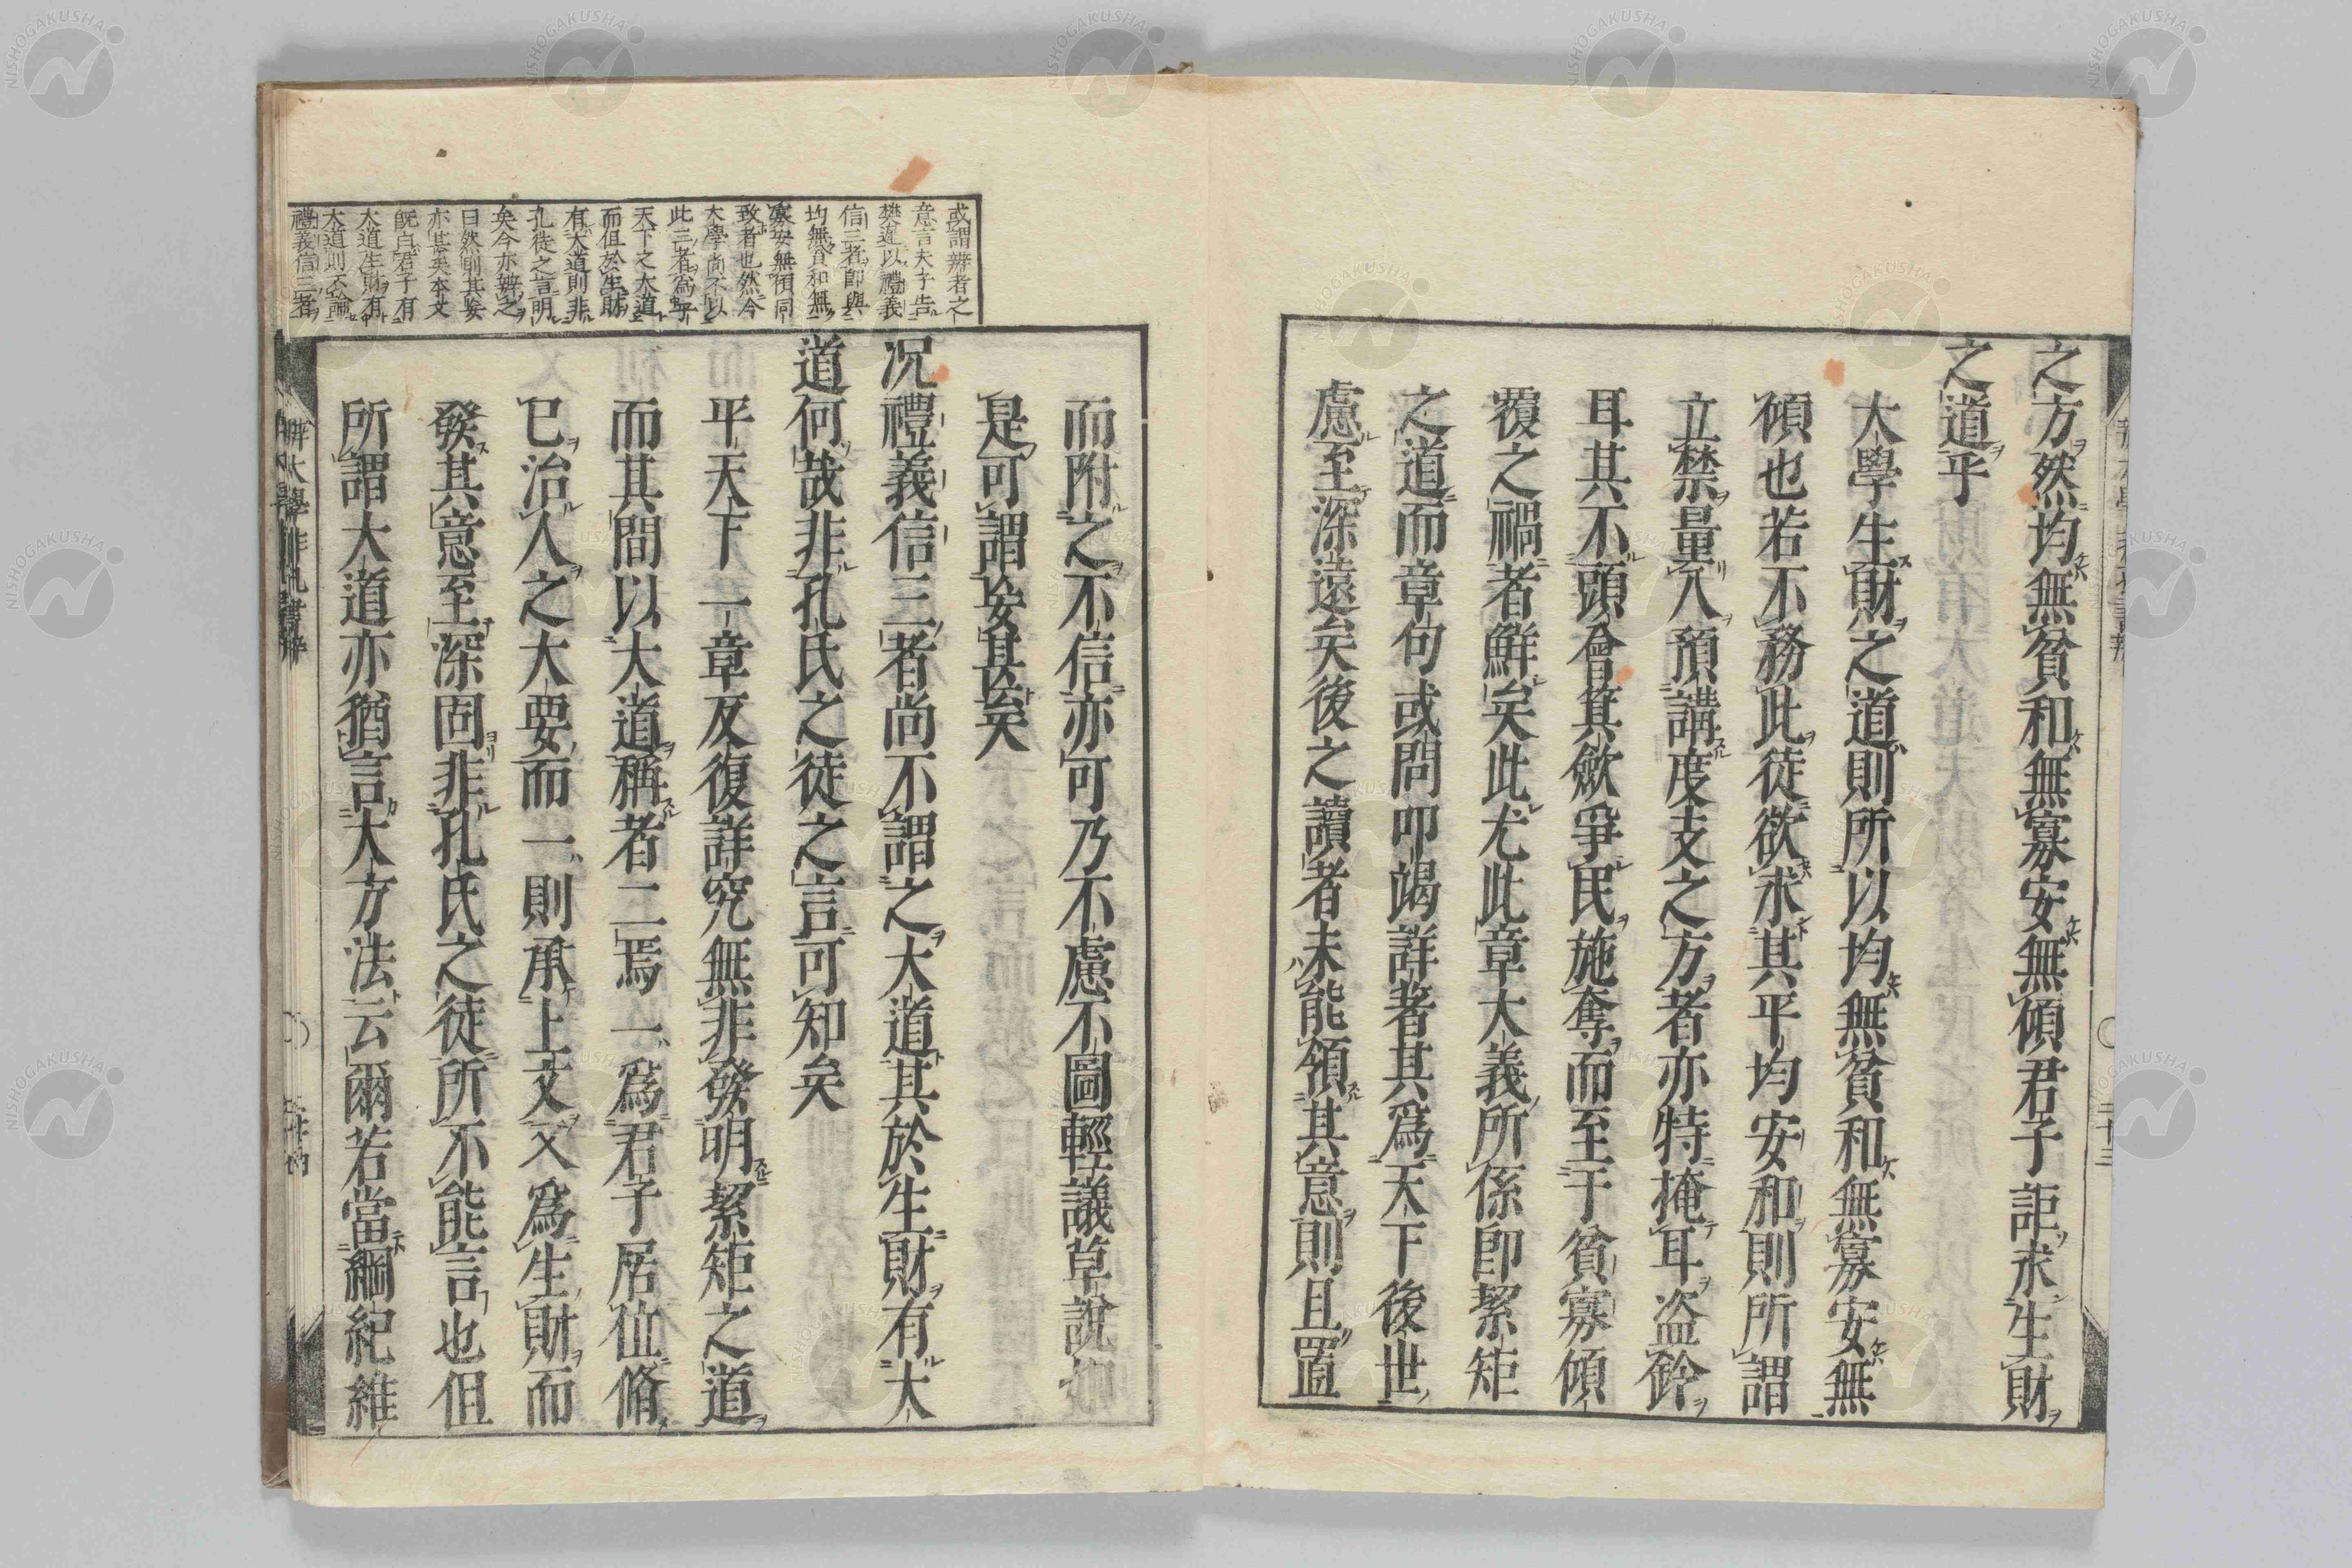 之方然均無貧和無寡安無傾君子詎求生財
之道乎
大學生財之道則所以均無貧和無寡安無
傾也若不務此徒欲求其平均安和則所謂
立禁量入預講度支之方者亦特掩耳盜鈴
耳其不頭會箕歛爭民施奪而至于貧寡傾
覆之禍者鮮矣此尤此章大義所係即絜矩
之道而章句或問叩竭詳著其爲天下後世
慮至深遠矣後之讀者未能領其意則且置
而附之不信亦可乃不慮不圖輕議草說
是可謂妄甚矣
况禮義信三者尚不謂之大道其於生財有大
道何哉非孔氏之徒之言可知矣
平天下一章反復詳究無非發明絜矩之道
而其間以大道稱者二焉一爲君子居位脩
已治人之大要而一則承上文又爲生財而
發其意至深固非孔氏之徒所不能言也但
所謂大道亦猶言大方法云爾若當綱紀維
或謂辨者之
意言夫子告
樊遲以禮義
信三者即與
均無貧和無
寡安無傾同
致者也然今
大學尚不以
此三者爲平
天下之大道
而但於生財
有大道則非
孔徒之言明
矣今亦辨之
曰然則其妄
亦甚矣本文
旣白君子有
大道生財有
大道則不論
禮義信三者
辨大學非孔書辨
二十三
NISHOGAKUSHA